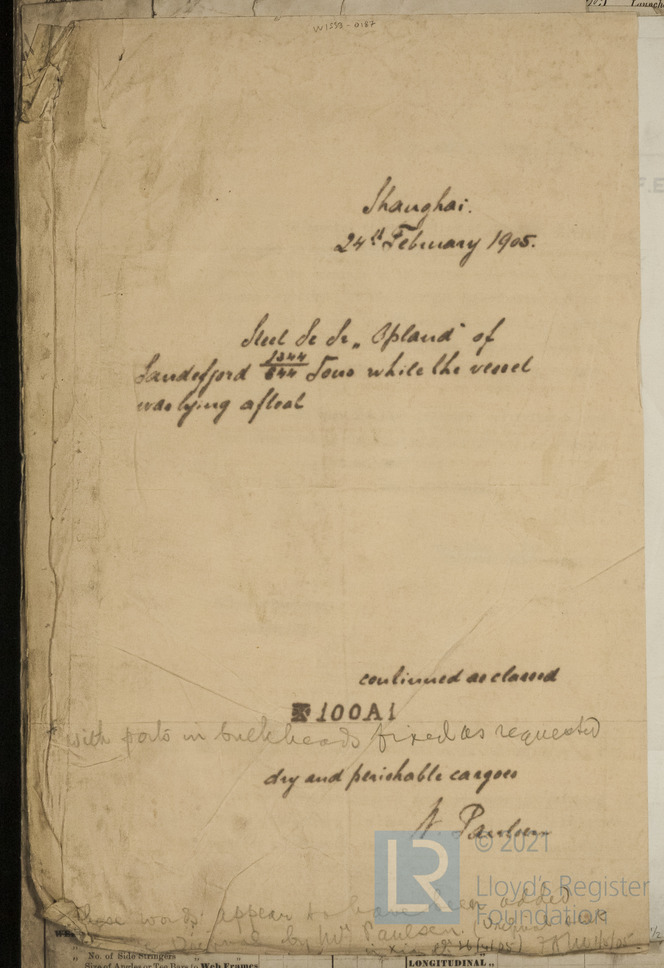 W1593-0187
Launch
Shanghai.
24th February 1905.
Steel Sc Sr „Opland" of
Sandefjord 1344/844 Tons while the vessel
was lying afloat
continued as classed
✠100A1
with ports in bulkheads fixed as requested
dry and perishable cargoes
N. Paulsen
© 2021
LR
Lloyd's Register
Foundation
These words appear to have been added
by Mr Paulsen
No. of Side Stringers
Size of Angles or Tee Bars to Web Frames
LONGITUDINAL